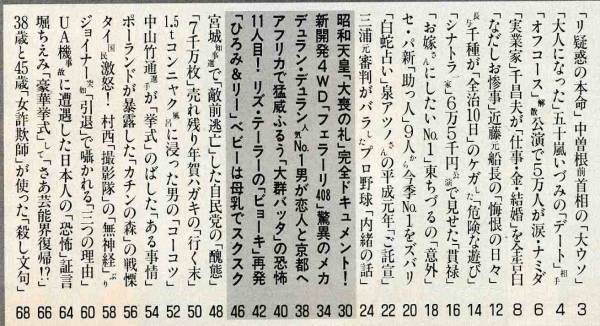 「リ疑惑の本命」中曽根前首相の「大ウソ」 3
「大人になった」五十嵐いづみの「デート」相手 4
「オフコース」解散公演で5万人が涙・ナミダ 6
実業家・千昌夫が「仕事・金・結婚」を全告白 8
「なだしお惨事」近藤元船長の「悔恨の日々」 12
長与千種が「全治10日」のケガした「危険な遊び」 14
「シナトラ一家」6万5千円公演で見せた「貫禄」 16
「お嫁さんにしたいNo.1」東ちづるの「意外」 18
セ・パ新「助っ人」9人から今季No.1をズバリ 20
「白蛇占い」泉アツノさんの平成元年「ご託宣」 22
三浦元審判がバラしたプロ野球「内緒の話」 24
昭和天皇「大喪の礼」完全ドキュメント! 30
新開発4WD「フェラーリ408」驚異のメカ 34
デュラン・デュラン人気No.1男が恋人と京都へ 38
アフリカで猛威ふるう「大群バッタ」の恐怖 40
11人目!リズ・テーラーの「ビョーキ」再発 42
「ひろみ&リー」ベビーは母乳でスクスク 46
宮城知事選で「敵前逃亡」した自民党の「醜態」 48
「7千万枚」売れ残り年賀ハガキの「行く末」 50
1.5tコンニャク風呂に浸った男の「コーコツ」 52
中山竹通選手が「挙式」のばした「ある事情」 54
ポーランドが暴露した「カチンの森」の戦慄 56
タイ国民激怒!村西「撮影隊」の「無神経」ぶり 58
ジョイナー突如「引退」で囁かれる「三つの理由」 60
UA機事故に遭遇した日本人の「恐怖」証言 64
堀ちえみ「豪華挙式」して「さあ芸能界復帰!?」 66
38歳と45歳「女詐欺師」が使った「殺し文句」 68